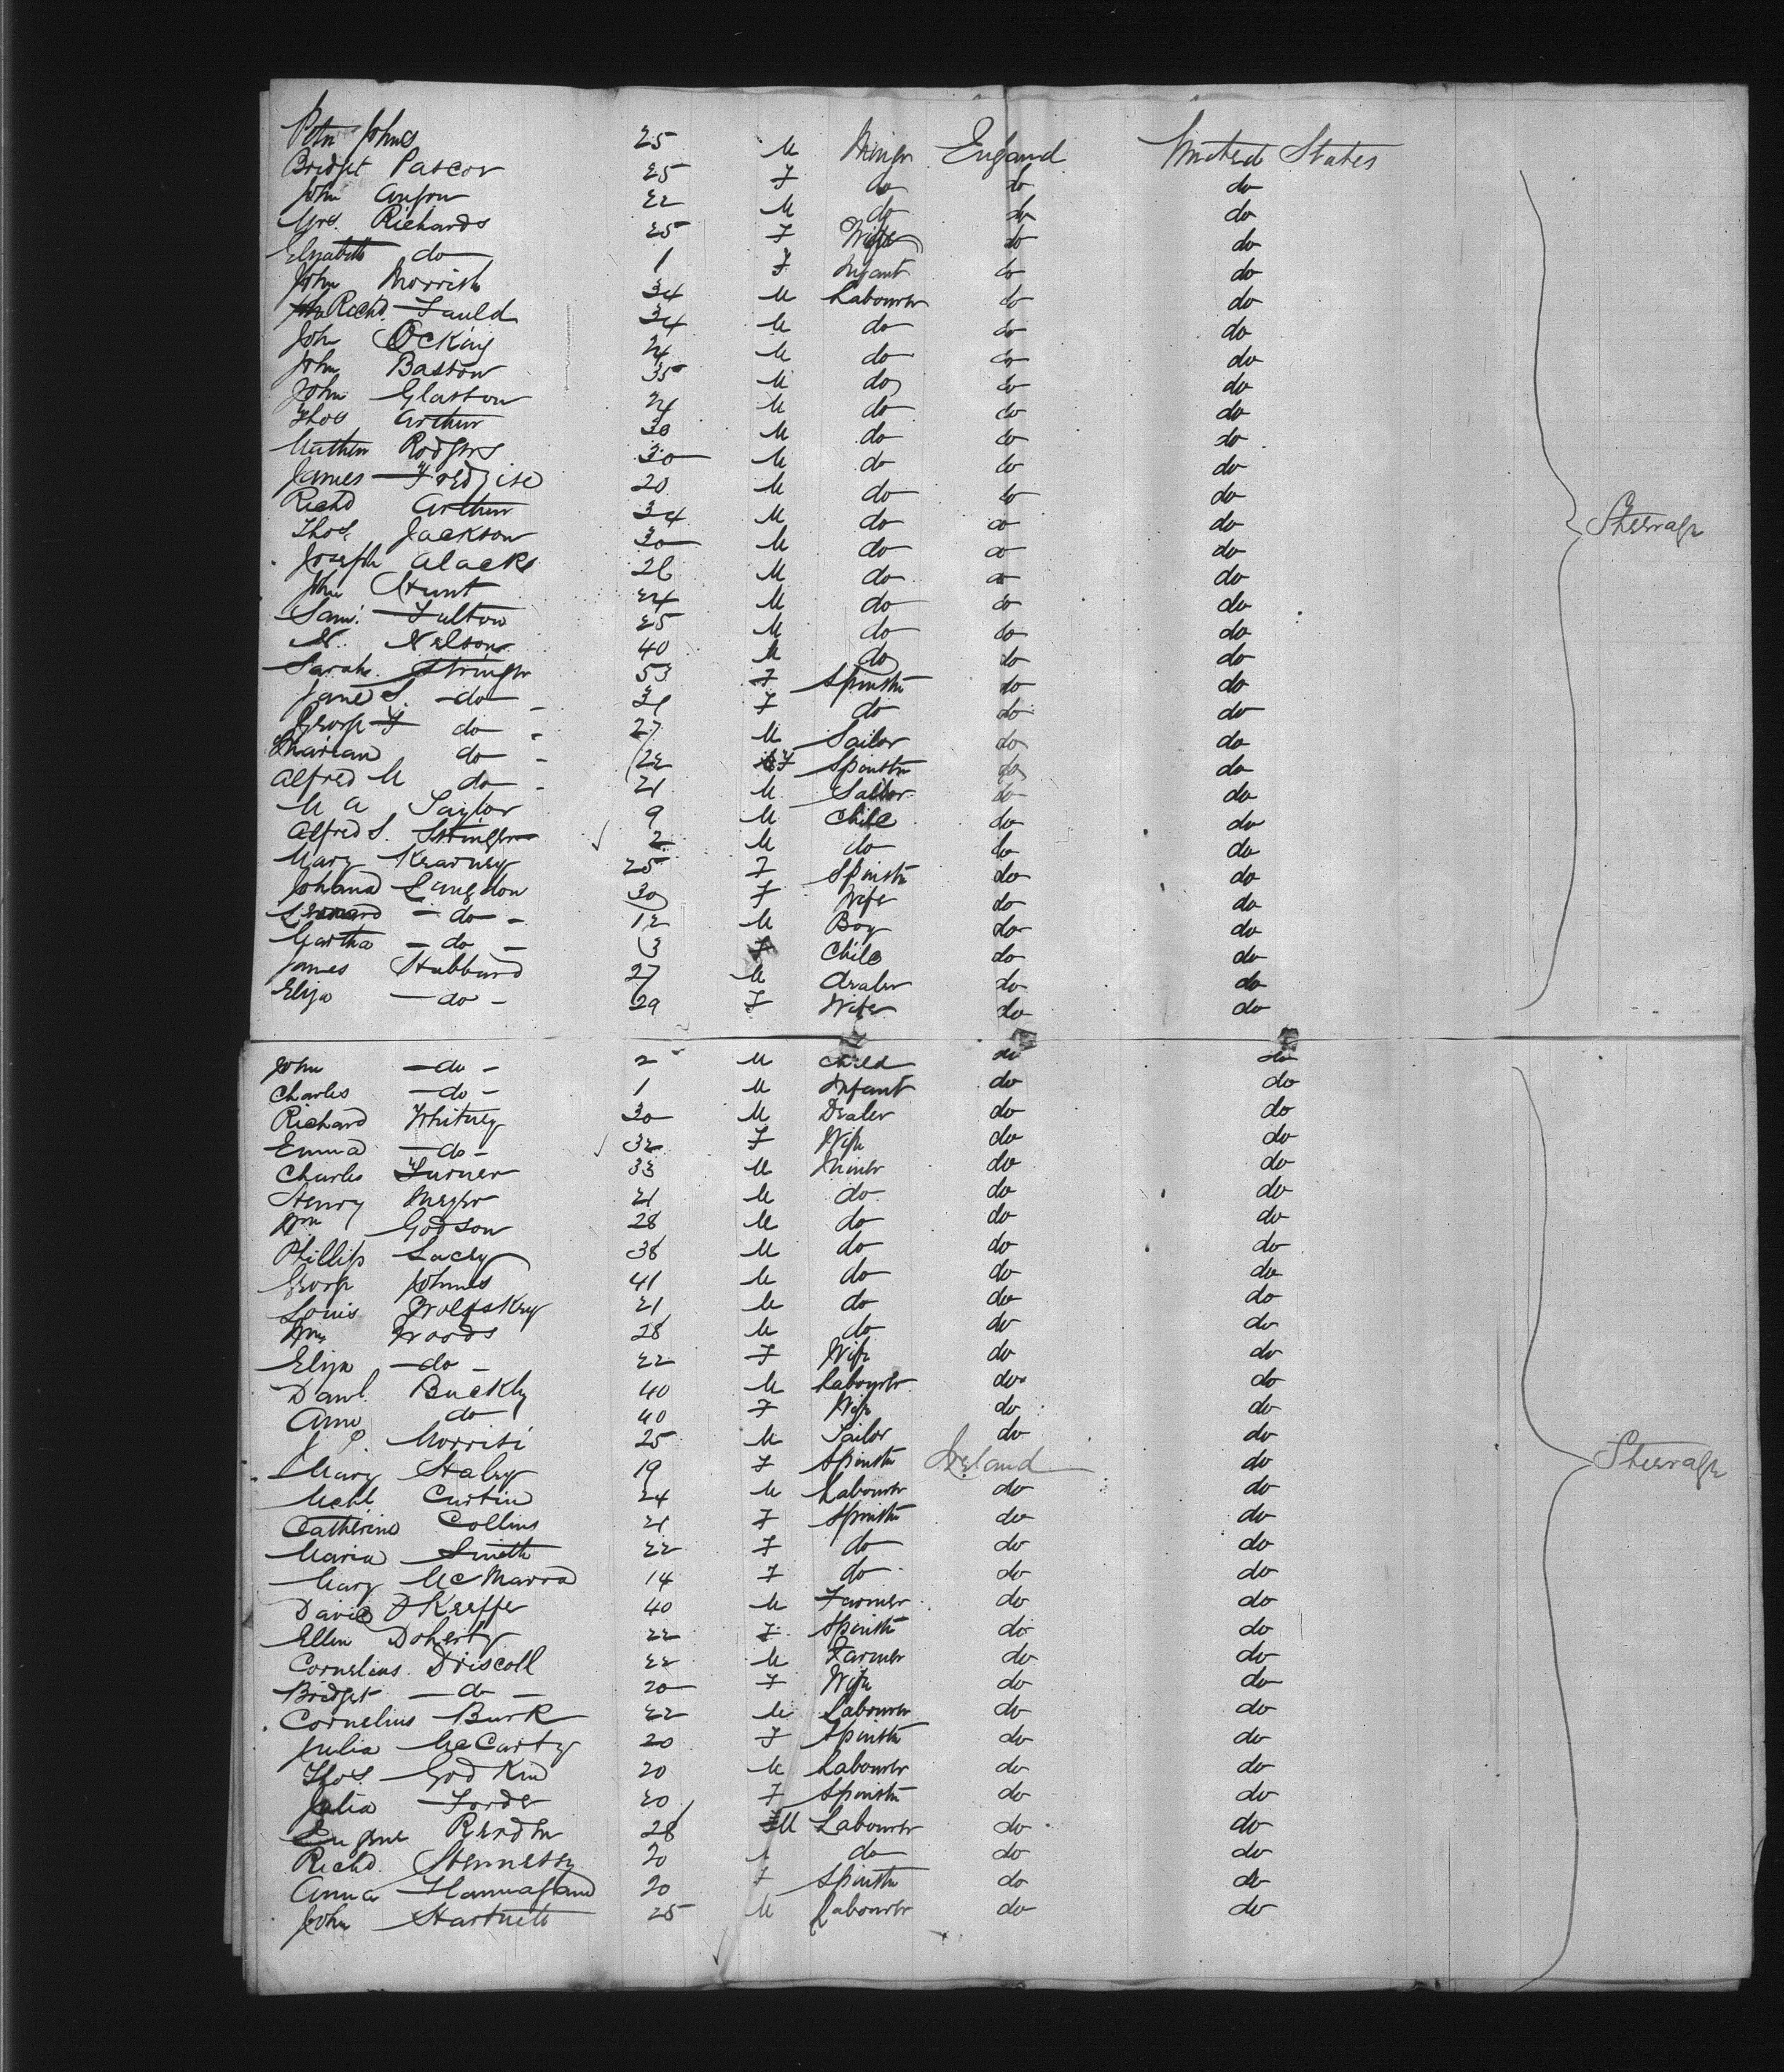 Peter Johns 25 M Miner England United States
Bridget Pascov 25 F do do do
John 22 M do do do
Mrs. Richards 25 F Wife do do
Elizabeth do 1 F Infant do do
John Morrish 34 M Labourer do do
Richd. Fauld 34 M do do do
John Ocking 24 M do do do
John Baston 35 M do do do
John Glasson 24 M do do do
Thos Arthur 30 M do do do
Mathew Rodgers 30 M do do do
James 20 M do do do
Richd Arthur 34 M do do do
Thos Jackson 30 M do do do
Joseph Alacks 26 M do do do
John Hunt 24 M do do do
Saml. Fulton 25 M do do do
N. Nelson 40 M do do do
Sarah Stringer 53 F Spinster do do
Jane S. -do- 21 F do do do
George F do - 27 M Sailor do do
Marian do - 22 F Spinster do do
Alfred M do - 21 M Sailor do do
M A Taylor 9 M Child do do
Alfred S. Stringer 2 M do do do
Mary Kearney 25 F Spinster do do
Johana Langdon 30 F Wife do do
Leonard - do - 12 M Boy do do
Martha - do - 3 F Child do do
James Hubbard 27 M Dealer do do
Eliza - do - 29 F Wife do do
Steerage
John - do - 2 M Child do do
Charles - do - 1 M Infant do do
Richard Whitney 30 M Dealer do do
Emma - do - 32 F Wife do do
Charles Turner 33 M Miner do do
Henry Meyer 21 M do do do
Wm Godson 28 M do do do
Phillip Lacey 38 M do do do
George Johnes 41 M do do do
Louis Wolfskey 21 M do do do
Wm Woods 28 M do do do
Eliza - do - 22 F Wife do do
Danl. Buckly 40 M Labourer do do
Ann do 40 F Wife do do
J. P. Morrisi 25 M Tailor do do
Mary Haley 19 F Spinster Ireland do
Michl. Curtin 24 M Labourer do do
Catherine Collins 21 F Spinster do do
Maria Smith 22 F do do do
Mary McMarra 14 F do do do
David O'Keeffe 40 M Farmer do do
Ellen Doherty 22 F Spinster do do
Cornelius Driscoll 22 M Farmer do do
Bridget - do - 20 F Wife do do
Cornelius Burk 22 M Labourer do do
Julia McCarty 20 F Spinster do do
Thos. God Kin 20 M Labourer do do
Julia Forde 20 F Spinster do do
Eugene 28 M Labourer do do
Richd. Hennessy 20 do do do
Anna Hannafand 20 F Spinster do do
John Hartnett 25 M Labourer do do
Steerage